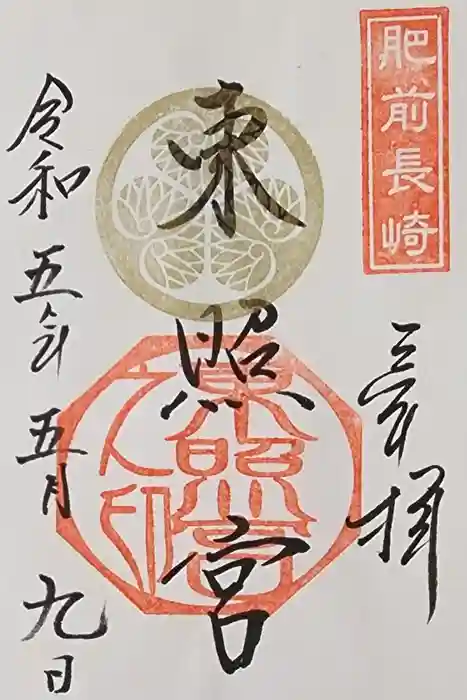 肥前長崎
奉拝
東照宮
東照宮之印
令和五年五月九日